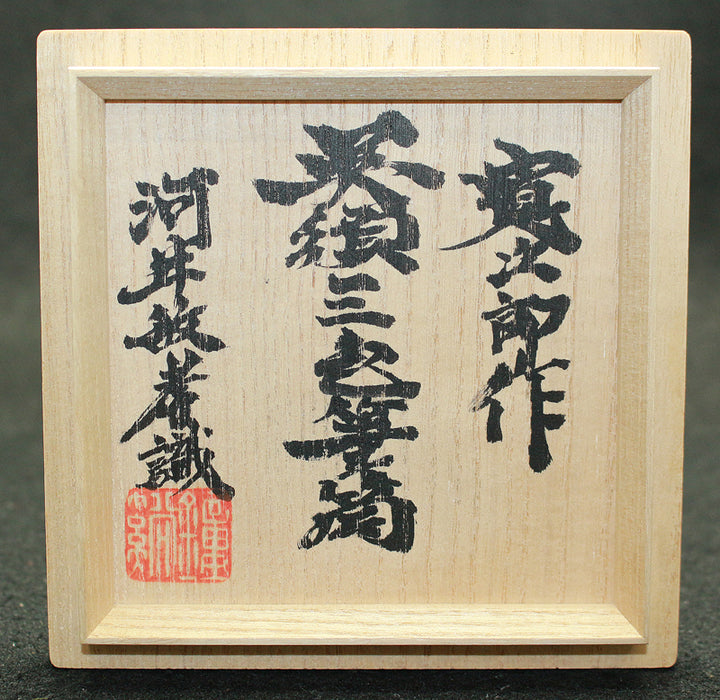 寛次郎作
呉須三色筆筒
河井敏孝識